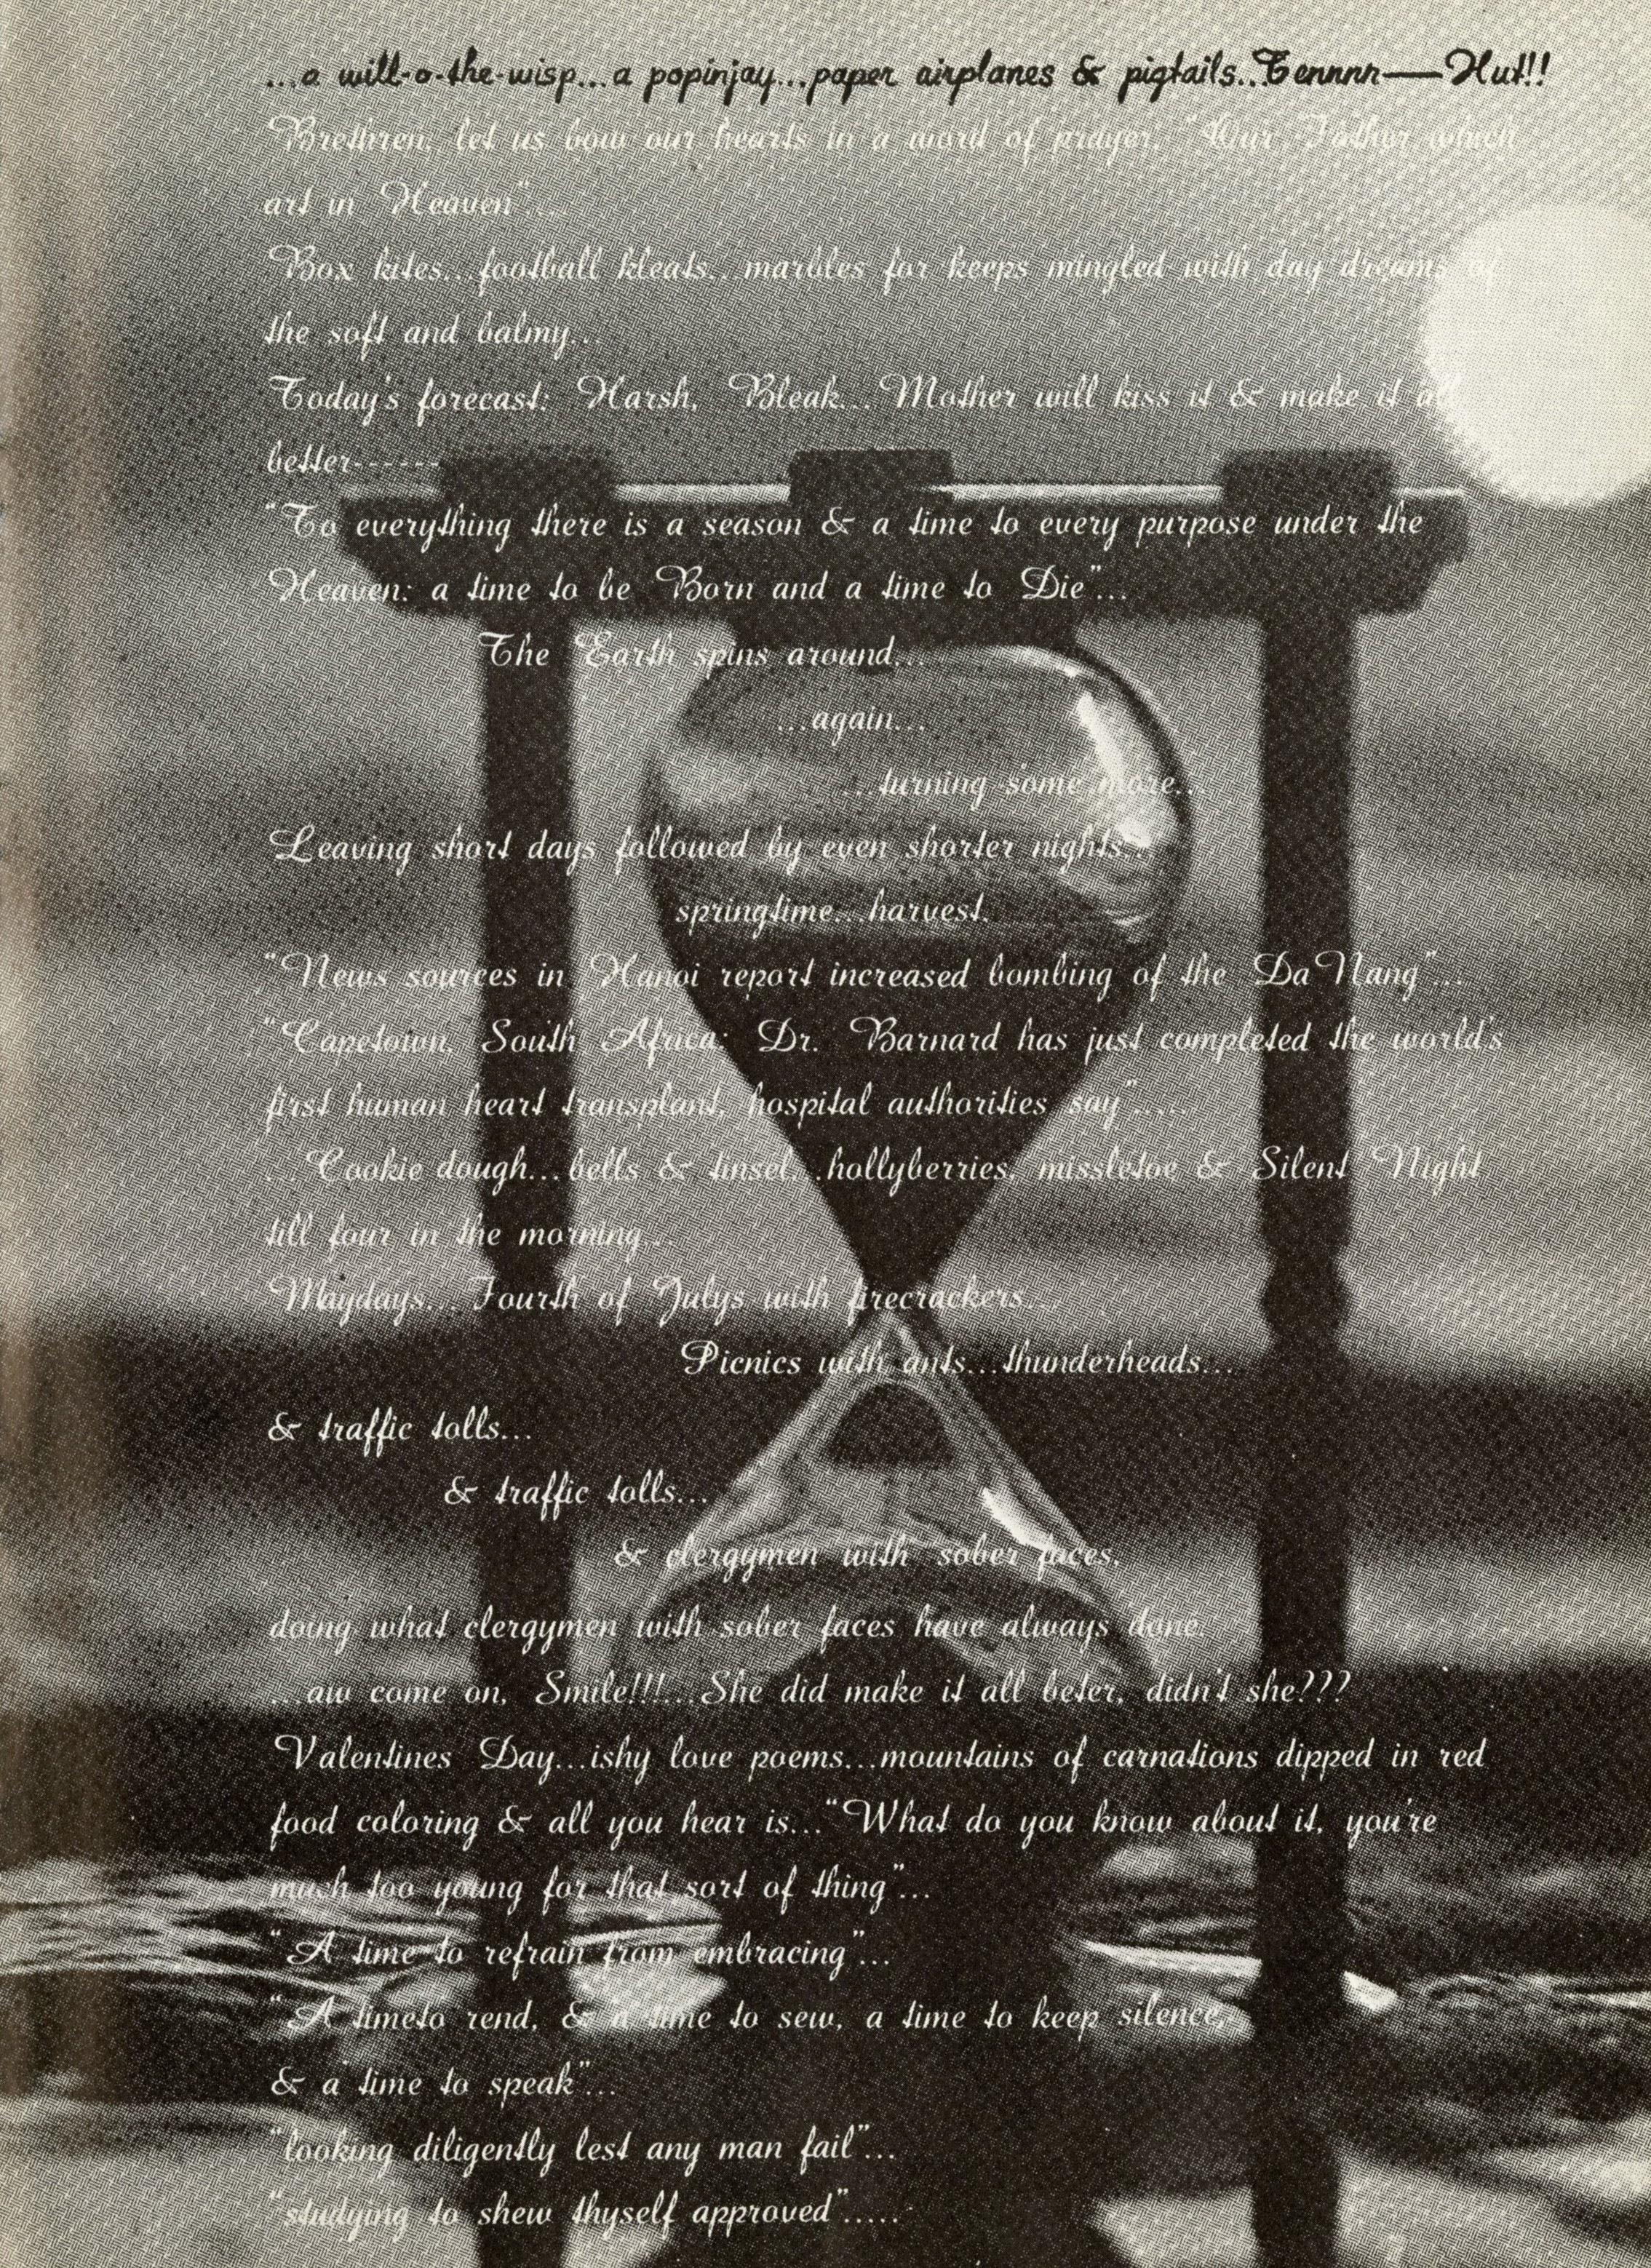 ...a will-o-the-wisp...a popinjay...paper airplanes & pigtails..Tennnn—Hut!!
Brethren, let us bow our hearts in a word of prayer. "Our Father which
art in Heaven"....
Box kites...football kleats...marbles for keeps mingled with day dreams of
the soft and balmy...
Today's forecast: Harsh, Bleak... Mother will kiss it & make it all
better------
"To everything there is a season & a time to every purpose under the
Heaven: a time to be Born and a time to Die"...
The Earth spins around...
...again...
...turning some more...
Leaving short days followed by even shorter nights...
springtime...harvest.
"News sources in Hanoi report increased bombing of the DaNang"...
"Capetown, South Africa: Dr. Barnard has just completed the world's
first human heart transplant, hospital authorities say"....
...Cookie dough...bells & tinsel...hollyberries, missletoe & Silent Night
till four in the morning...
Maydays... Fourth of Julys with firecrackers...
Picnics with ants...thunderheads...
& traffic tolls...
& traffic tolls...
& clergymen with sober faces,
doing what clergymen with sober faces have always done.
...aw come on, Smile!!!...She did make it all beter, didn't she???
Valentines Day...ishy love poems...mountains of carnations dipped in red
food coloring & all you hear is..."What do you know about it, you're
much too young for that sort of thing"...
"A time to refrain from embracing"...
"A timeto rend, & a time to sew, a time to keep silence,
& a time to speak"...
"looking diligently lest any man fail"...
"studying to shew thyself approved".....